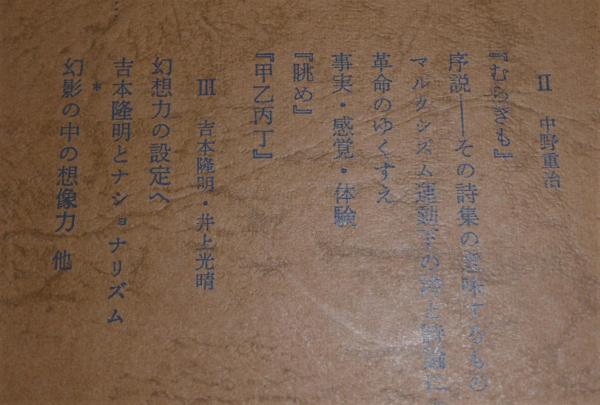 II 中野重治
『むらぎも』
序説――その詩集の意味するもの
マルクシズム運動下の詩と詩論に
革命のゆくすえ
事実・感覚・体験
『眺め』
『甲乙丙丁』
III 吉本隆明・井上光晴
幻想力の設定へ
吉本隆明とナショナリズム
*
幻影の中の想像力 他